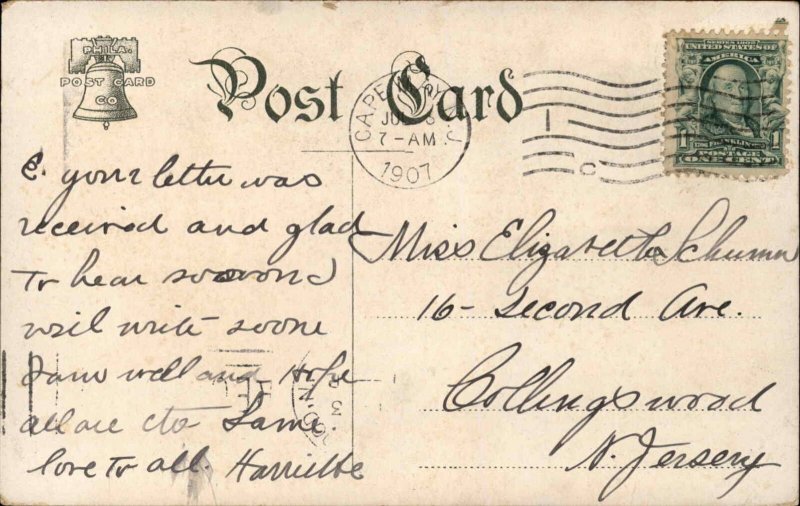 PHILA.
POST CARD
CO
Post Card
CAPE MAY
JUL
7-AM
1907
1
C
SERIES 1902
UNITED STATES OF
AMERICA
1 FRANKLIN 1
POSTAGE
ONE CENT
E. your letter was
received and glad
to hear so soon
will write soone
I am well and Hope
all are the Same.
love to all. Harriette
Miss Elizabetha Schumm
16- Second Ave.
Collingswood
N. Jersery